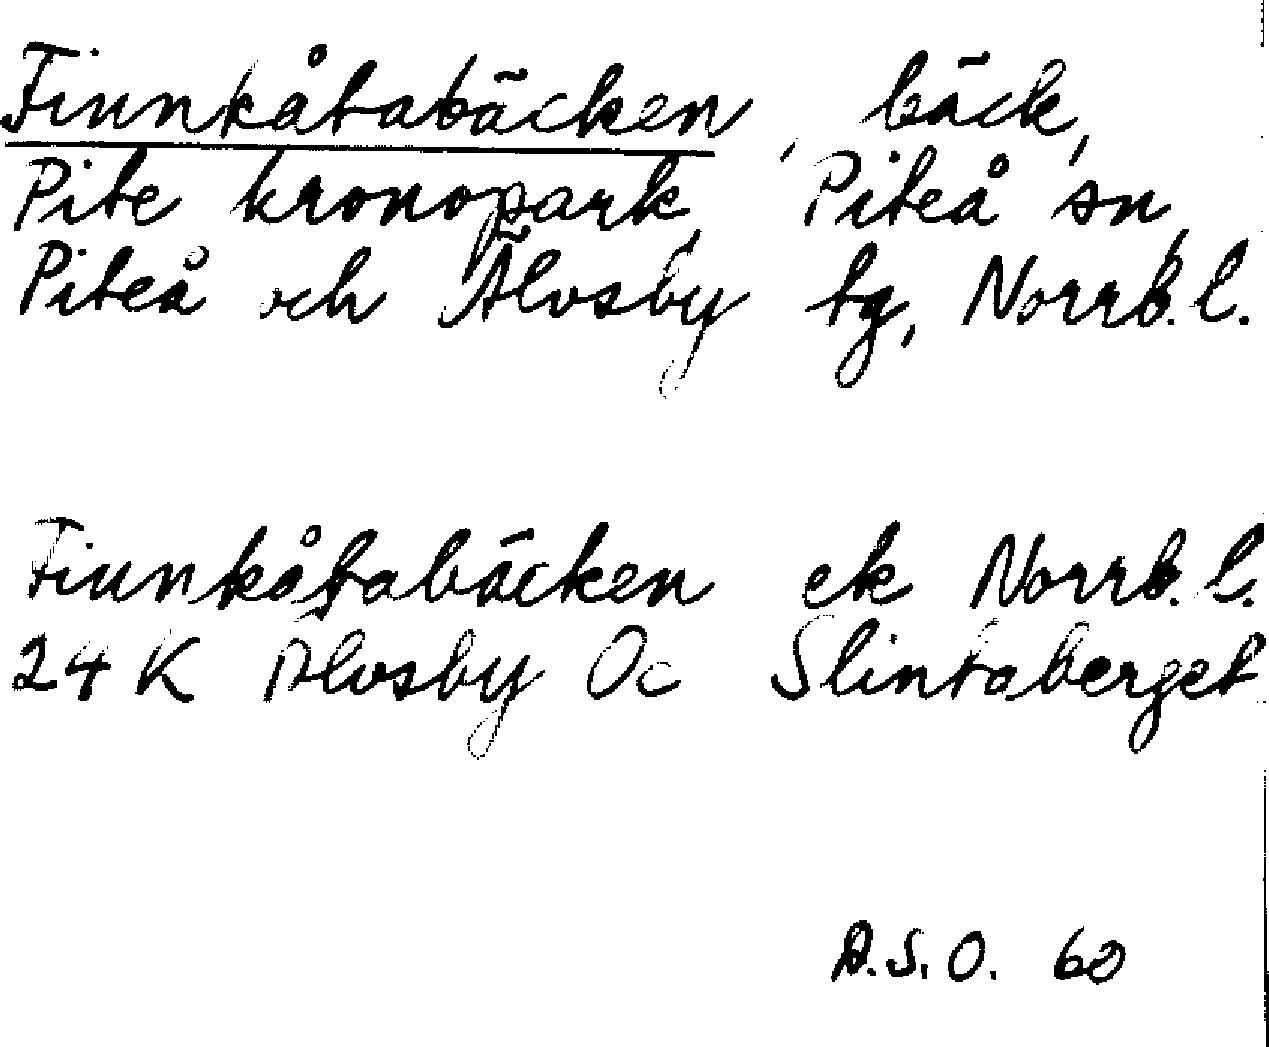 Finnkåtabäcken, bäck,
Pite kronopark, Piteå sn,
Piteå och Älvsby tg, Norrb. l.
Finnkåtabäcken ek Norrb. l.
24 K Älvsby Oc Slintaberget
D.S.O. 60